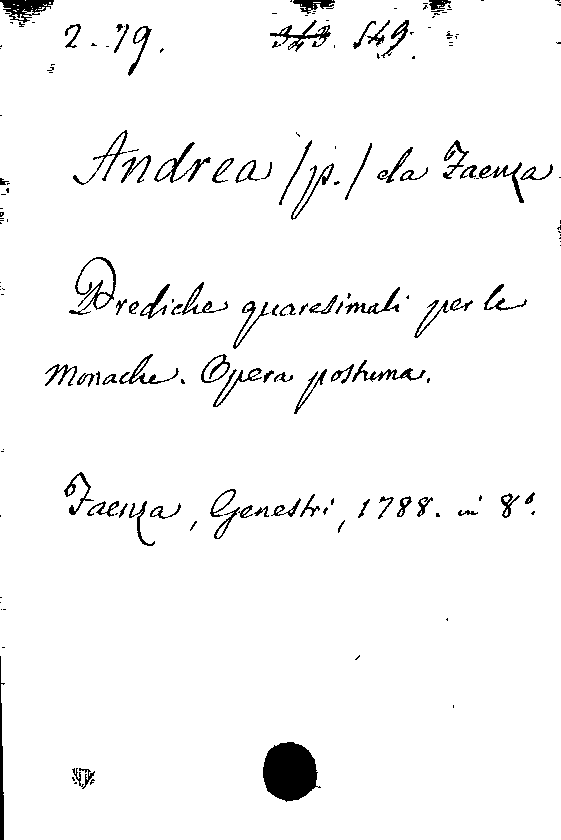 2. 79. 343. 549.
Andrea /p./ da Faenza
Prediche quaresimali per le
Monache. Opera postuma.
Faenza, Genestri, 1788. in 8°.